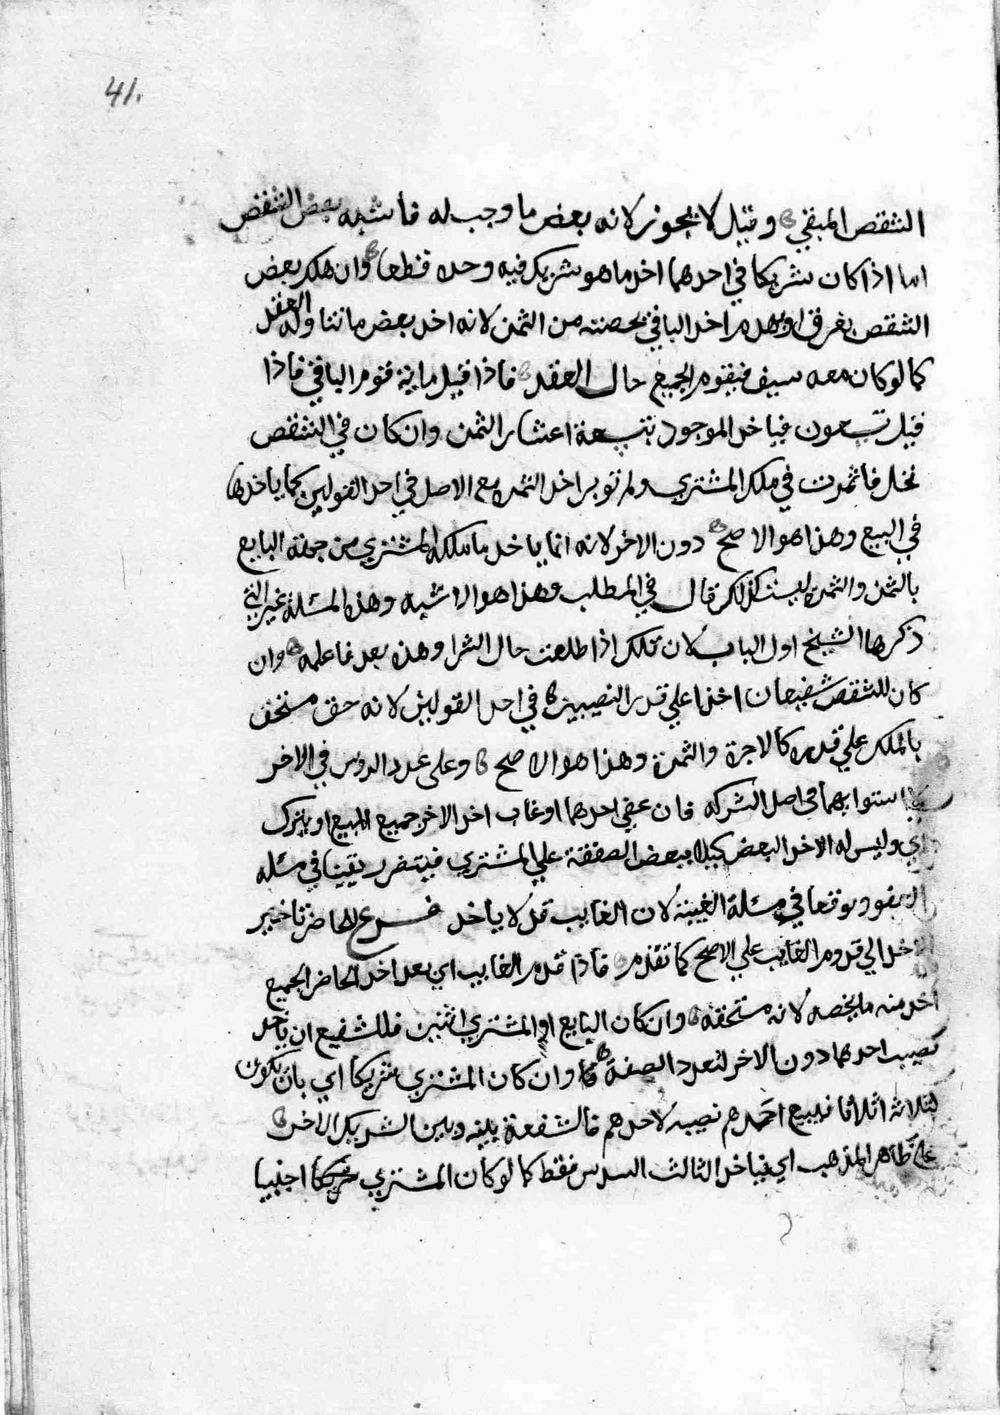 41.
الشقص المبقي وقيل لا يجوز لانه بعض ما وجب له فاشبه بعض الشقص
اما اذا كان شريكا في احدهما اخذ ما هو شريك فيه وحده قطعا وان هلك بعض
الشقص بغرق او هدم اخذ الباقي بحصته من الثمن لانه اخذ بعض ما تناوله العقد
كما لو كان معه سيف فيقوم الجميع حال العقد فاذا قيل ماية قوم الباقي فاذا
قيل تسعون فياخذ الموجود بتسعة اعشار الثمن وان كان في الشقص
نخل فاثمرت في ملك المشتري ولم توبر اخذ الثمرة مع الاصل في احد القولين كما ياخذها
في البيع وهذا هو الاصح دون الاخر لانه انما ياخذ ما ملكه المشتري من جهة البايع
بالثمن والثمرة ليست كذلك قال في المطلب وهذا هو الاشبه وهذه المسئلة غير التي
ذكرها الشيخ اول الباب لان تلك اذا طلعت حال الشرا وهذه بعد فاعلمه وان
كان للشقص شفيعان اخذا علي قدر النصيبين في احد القولين لانه حق مستحق
بالملك علي قدره كالاجرة والثمرة وهذا هو الاصح وعلى عدد الروس في الاخر
استوايهما في اصل الشركه فان عفي احدهما او غاب اخذ الاخر جميع المبيع او يترك
اي وليس له الاخذ البعض كيلا يبعض الصفقة علي المشتري فيتضرر يقينا في مسئله
العفو وتوقعا في مسئلة الغيبة لان الغايب قد لا ياخذ فرع للحاضر تاخير
الاخذ الي قدوم الغايب علي الاصح كما تقدم فاذا قدم الغايب اي بعد اخذ الحاضر الجميع
اخذ منه ما يخصه لانه مستحقه وان كان البايع او المشتري اثنين فللشفيع ان ياخذ
نصيب احدهما دون الاخر لتعدد الصفقة وان كان المشتري شريكا اي بان يكون
لثلاثة اثلاثا فيبيع احدهم نصيبه لاحدهم فالشفعة بينه وبين الشريك الاخر
علي ظاهر المذهب اي فياخذ الثالث السدس فقط كما لو كان المشتري اجنبيا